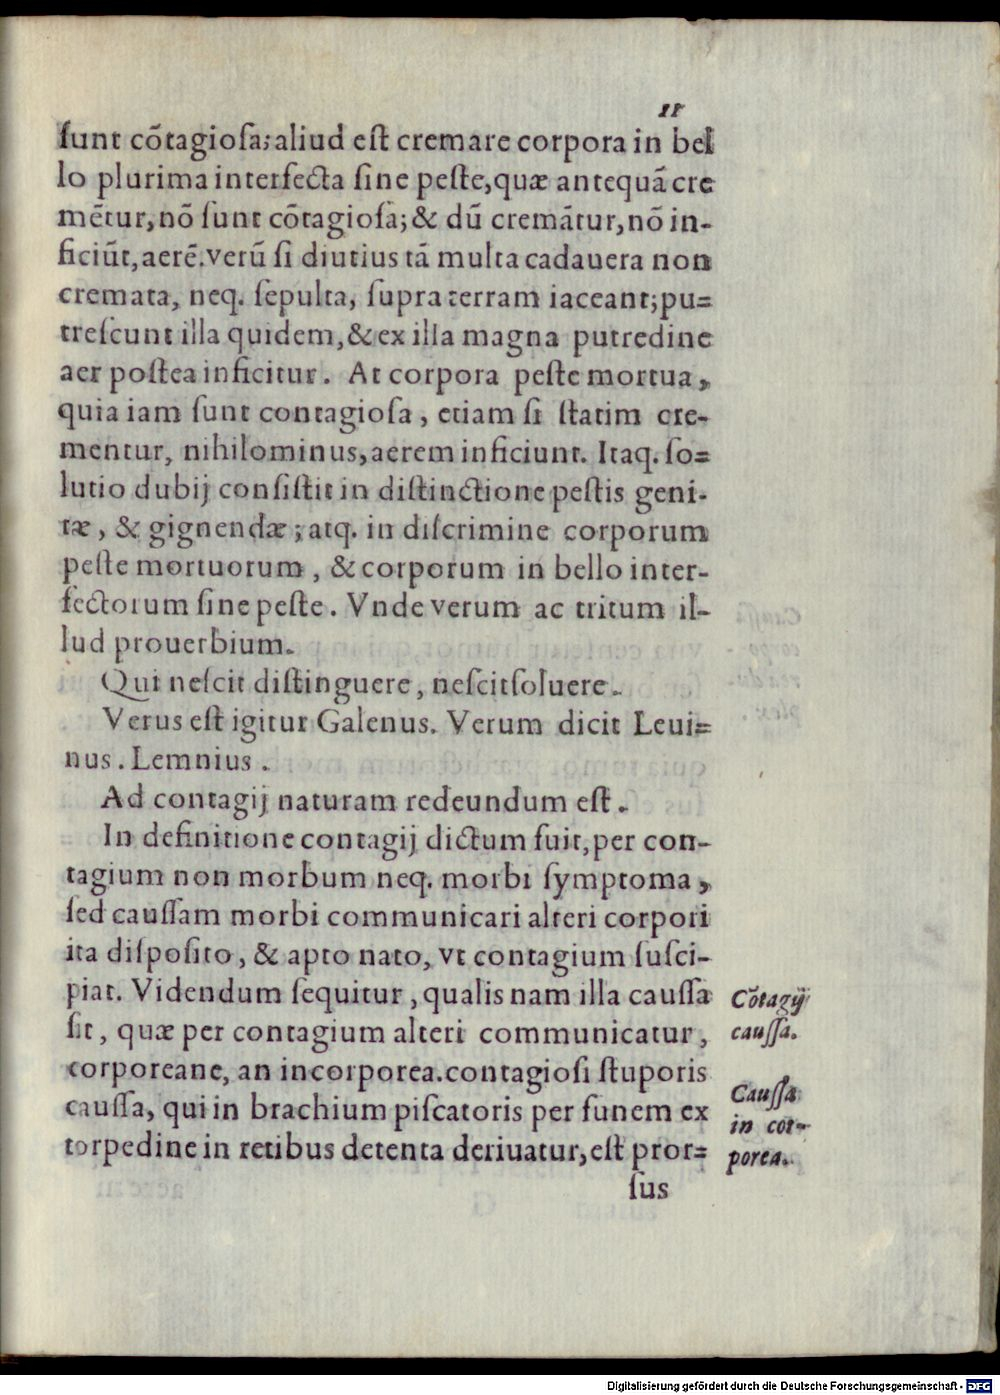 11
ſunt cōtagioſa; aliud eſt cremare corpora in bel
lo plurima interfecta ſine peſte, quæ antequā cre
mētur, nō ſunt cōtagioſa; & dū cremātur, nō in-
ficiūt, aerē. verū ſi diutius tā multa cadauera non
cremata, neq. ſepulta, ſupra terram iaceant; pu=
treſcunt illa quidem, & ex illa magna putredine
aer poſtea inficitur. At corpora peſte mortua,
quia iam ſunt contagioſa, etiam ſi ſtatim cre-
mentur, nihilominus, aerem inficiunt. Itaq. ſo=
lutio dubij conſiſtit in diſtinctione peſtis geni-
tæ, & gignendæ; atq. in diſcrimine corporum
peſte mortuorum, & corporum in bello inter-
fectorum ſine peſte. Vnde verum ac tritum il-
lud prouerbium.
Qui neſcit diſtinguere, neſcit ſoluere.
Verus eſt igitur Galenus. Verum dicit Leui=
nus. Lemnius.
Ad contagij naturam redeundum eſt.
In definitione contagij dictum fuit, per con-
tagium non morbum neq. morbi ſymptoma,
ſed cauſſam morbi communicari alteri corpori
ita diſpoſito, & apto nato, vt contagium ſuſci-
piat. Videndum ſequitur, qualis nam illa cauſſa
ſit, quæ per contagium alteri communicatur,
corporeane, an incorporea. contagioſi ſtuporis
cauſſa, qui in brachium piſcatoris per funem ex
torpedine in retibus detenta deriuatur, eſt pror=
ſus
Cōtagij
cauſſa.
Cauſſa
in cor-
porea.
Digitalisierung gefördert durch die Deutsche Forschungsgemeinschaft - DFG